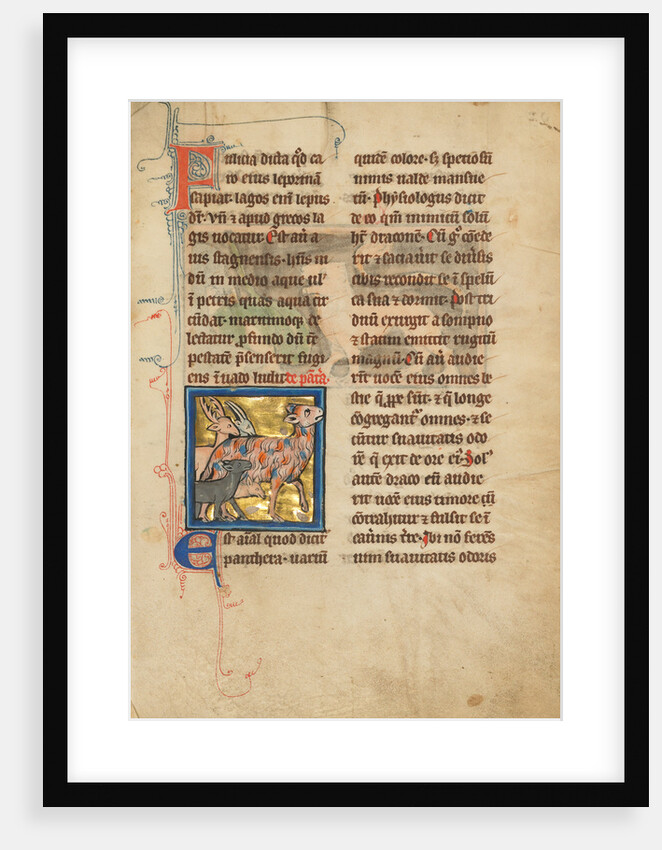 Fulicia dicta q̄d ca
ro eius leporinā
sapiat. lagos eni᷒ lepus
dr̄. Vn̄ ⁊ apud grecos la
gis uocatur. Est au᷒ a
uis stagnensis. hn̄s ni
dū in medio aque ul'
ī petris quas aqua cir
cūdat. maritimoq; de
lectatur ꝓfundo dū tē
pestatē p̄senserit fugi
ens ī uado ludit. de pāt'a.
Est aīal quod dicit᷑
panthera. uariū
quidē colore. sȝ speciosū
nimis ualde mansue
tū. Physiologus dicit
de eo qm̄ inimicū solū
hr̄ draconē. Cū g° comede
rit ⁊ saciau᷒it se diu᷒sis
cibis recondit se ī spelū
ca sua ⁊ dormit. Post tri
duū exurgit a sompno
⁊ statim emittit rugitū
magnū. Cū au᷒ audie
rīt uocē eius omnes be
stie q̄ ꝓpe sūt. ⁊ q̄ longe
cōgregant᷑ omnes. ⁊ se
cūtur suauitatis odo
rē q̄ exit de ore ei᷒. Sol᷒
autē draco cū audie
rit uocē eius timore
cōtrahitur ⁊ fulsit se ī
cau᷒nis t᷒re. Ibi nō ferēs
uim suauitatis odoris